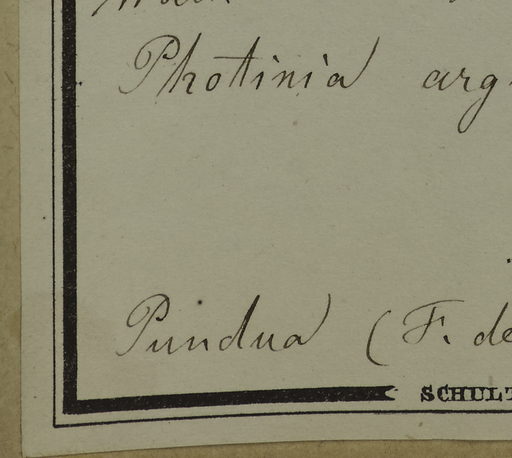 Photinia arg
Pundua (F. de
SCHULT